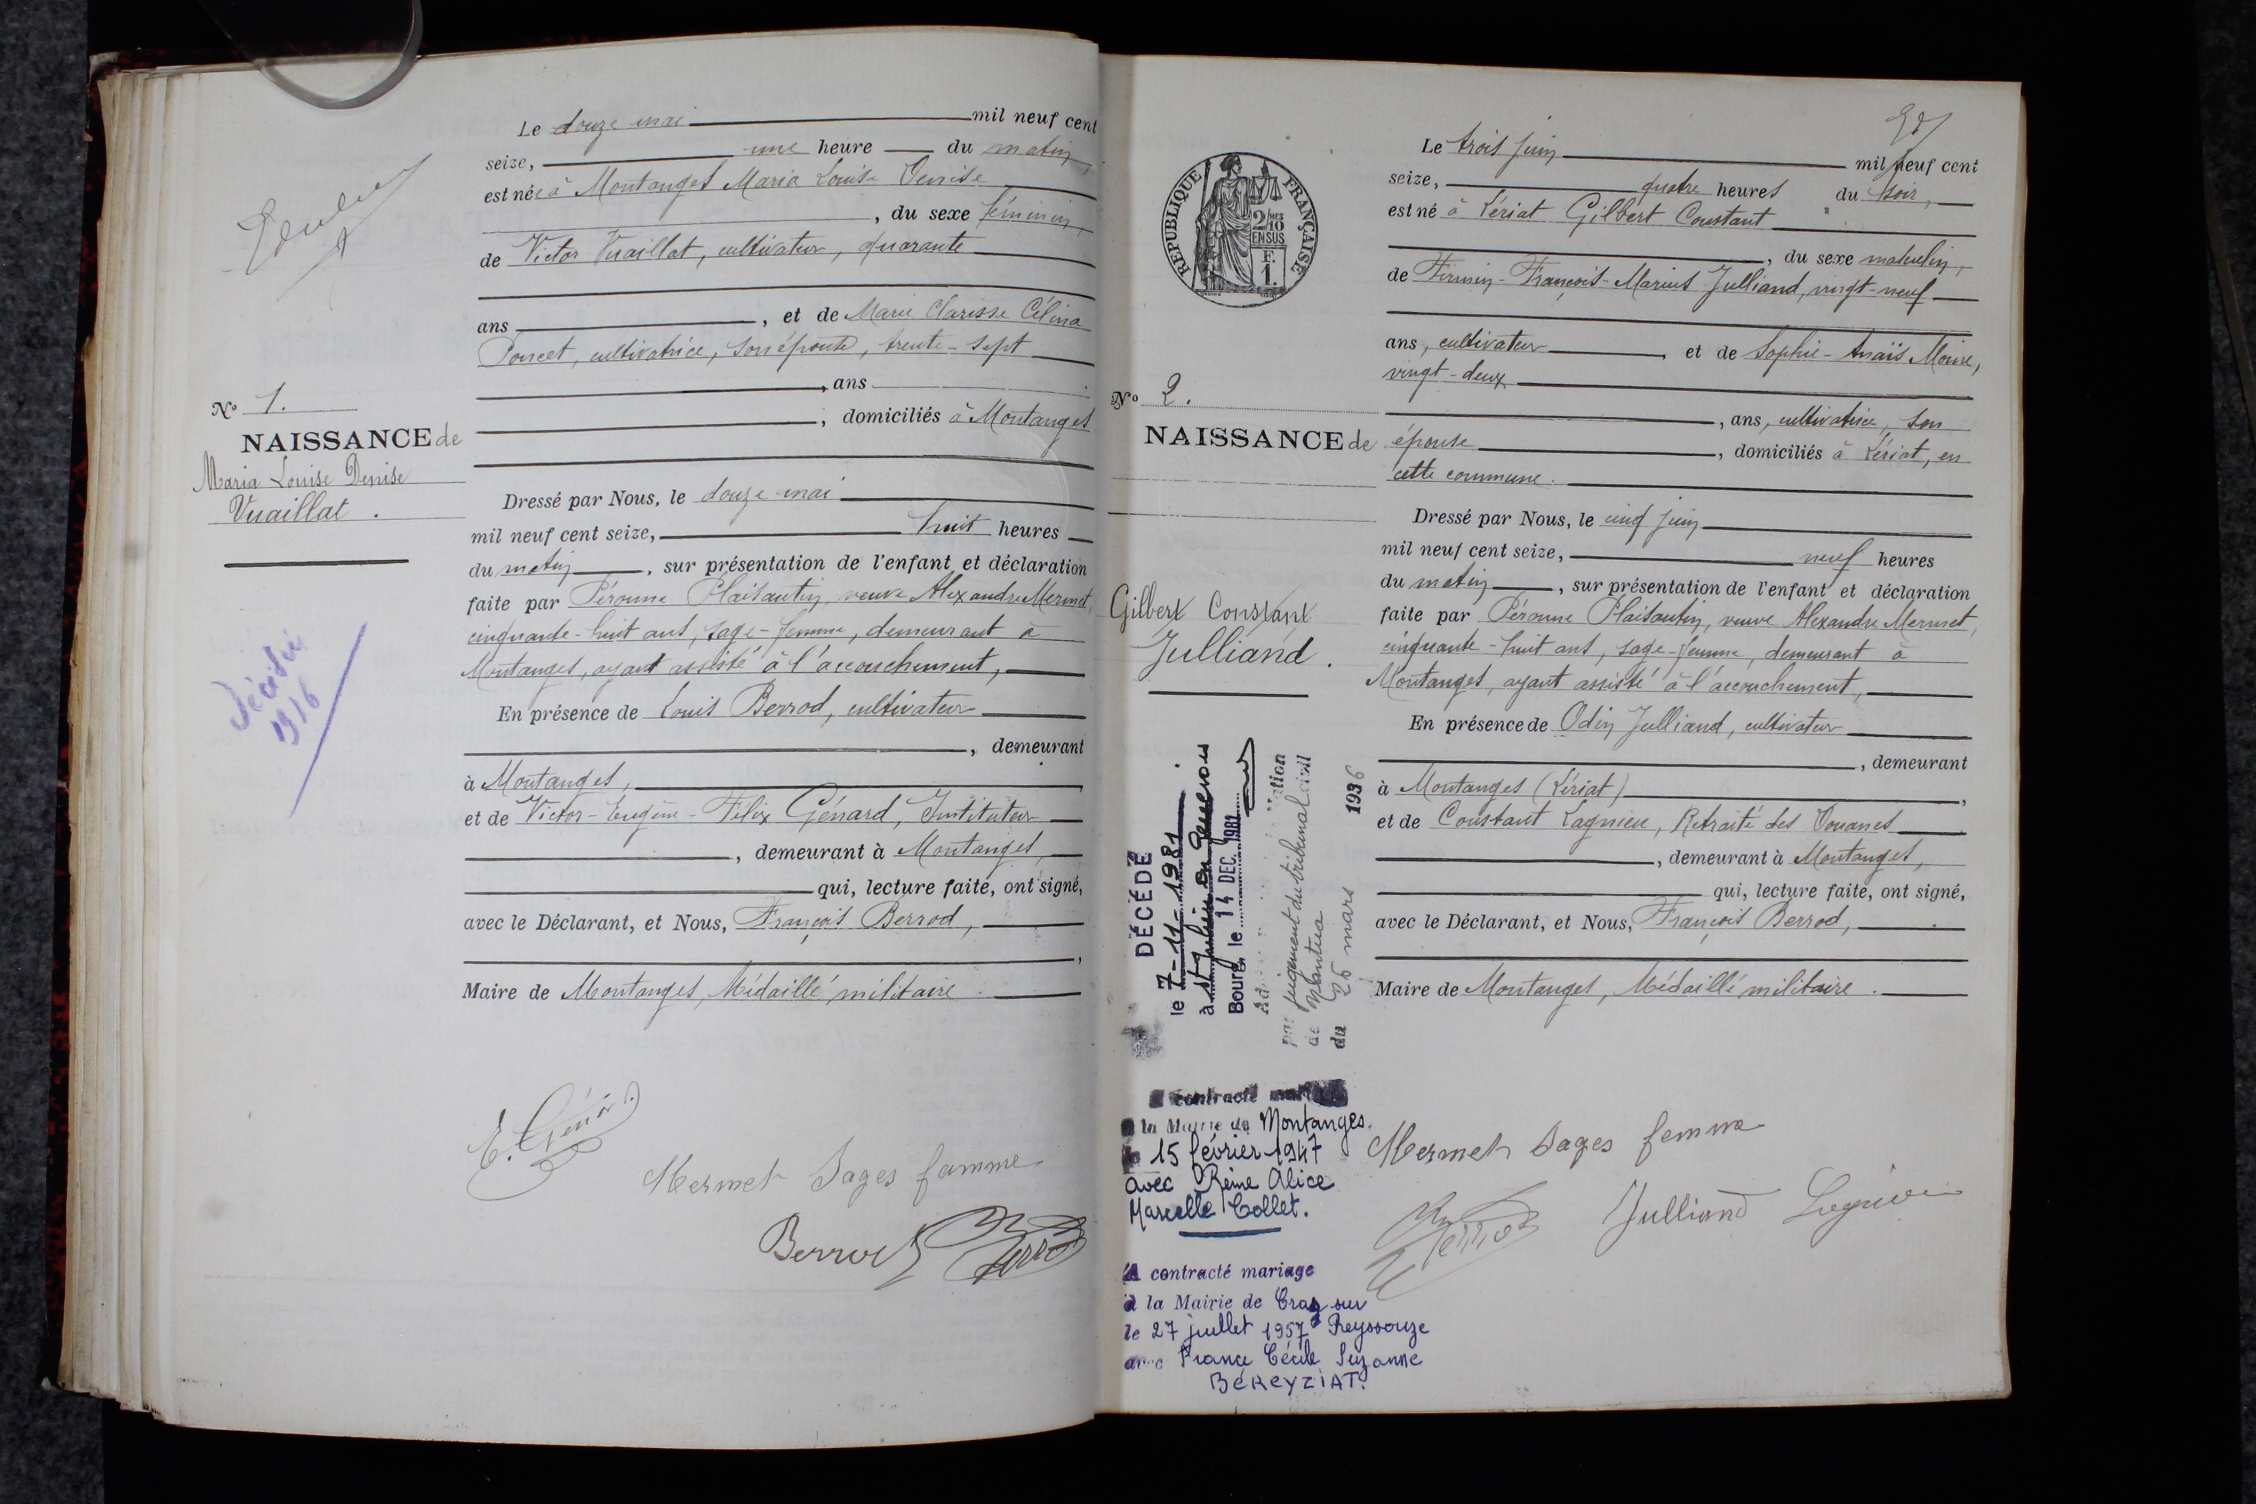 Le douze mai mil neuf cent
seize, une heure du matin,
est née à Montanges Maria Louise Denise
, du sexe féminin,
de Victor Vuaillat, cultivateur, quarante
ans , et de Marie Clarisse Célina
Poncet, cultivatrice, son épouse, trente-sept
, ans
, domiciliés à Montanges
No 1.
NAISSANCE de
Maria Louise Denise
Vuaillat.
Décédée
1916
Dressé par Nous, le douze mai
mil neuf cent seize, huit heures
du matin , sur présentation de l'enfant et déclaration
faite par Péronne Plaisantin, veuve Alexandre Mermet,
cinquante-huit ans, sage-femme, demeurant à
Montanges, ayant assisté à l'accouchement,
En présence de Louis Berrod, cultivateur
, demeurant
à Montanges,
et de Victor-Eugène-Félix Génard, Instituteur
, demeurant à Montanges,
qui, lecture faite, ont signé,
avec le Déclarant, et Nous, François Berrod,
,
Maire de Montanges, Médaillé militaire.
E. Génard
Mermet Sages famme
Berrod
Berrod
RÉPUBLIQUE FRANÇAISE
2/10
EN SUS
F.
1.
Le trois juin mil neuf cent
seize, quatre heures du soir,
est né à Lériat Gilbert Constant
, du sexe masculin,
de Firmin-François-Marius Julliand, vingt-neuf
ans, cultivateur , et de Sophie-Anaïs Moine,
vingt-deux
, ans, cultivatrice, son
épouse , domiciliés à Lériat, en
cette commune.
No 2.
NAISSANCE de
Gilbert Constant
Julliand.
Dressé par Nous, le cinq juin
mil neuf cent seize, neuf heures
du matin , sur présentation de l'enfant et déclaration
faite par Péronne Plaisantin, veuve Alexandre Mermet,
cinquante-huit ans, sage-femme, demeurant à
Montanges, ayant assisté à l'accouchement,
En présence de Odin Julliand, cultivateur
, demeurant
à Montanges (Lériat) ,
et de Constant Lagnieu, Retraité des Douanes
, demeurant à Montanges,
qui, lecture faite, ont signé,
avec le Déclarant, et Nous, François Berrod,
Maire de Montanges, Médaillé militaire.
DÉCÉDÉ
le 7-11-1981
à St Julien en Genevois
Bourg, le 14 DEC. 1981
par jugement du tribunal civil
de Nantua
du 26 mars 1936
contracté mariage
la Mairie de Montanges.
15 février 1947
avec Reine Alice
Marcelle Collet.
A contracté mariage
à la Mairie de Cras sur
le 27 juillet 1957 Reyssouze
avec France Cécile Suzanne
BEREYZIAT.
Mermet Sages femme
Berrod
Julliand
Lagnieu